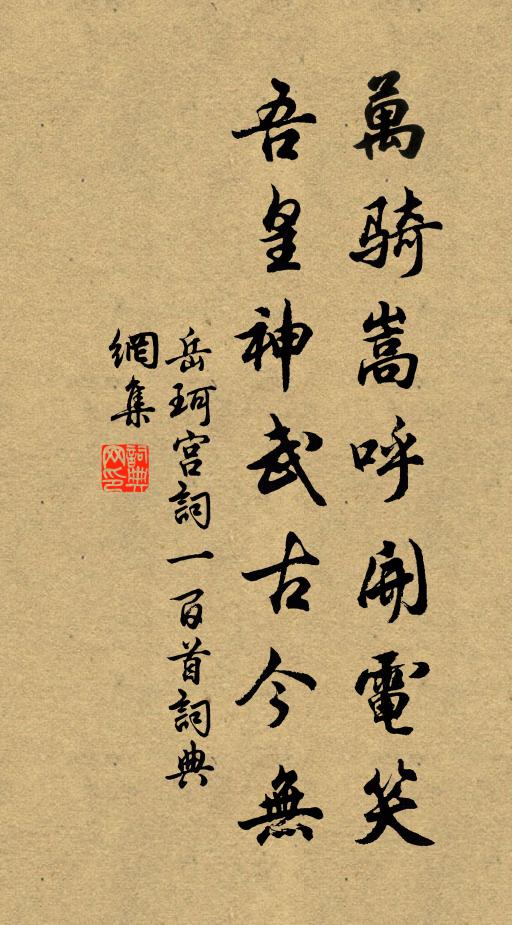 萬騎嵩呼開電笑
吾皇神武古今無
岳珂宮詞一百首詞典
網集
詞典
网印